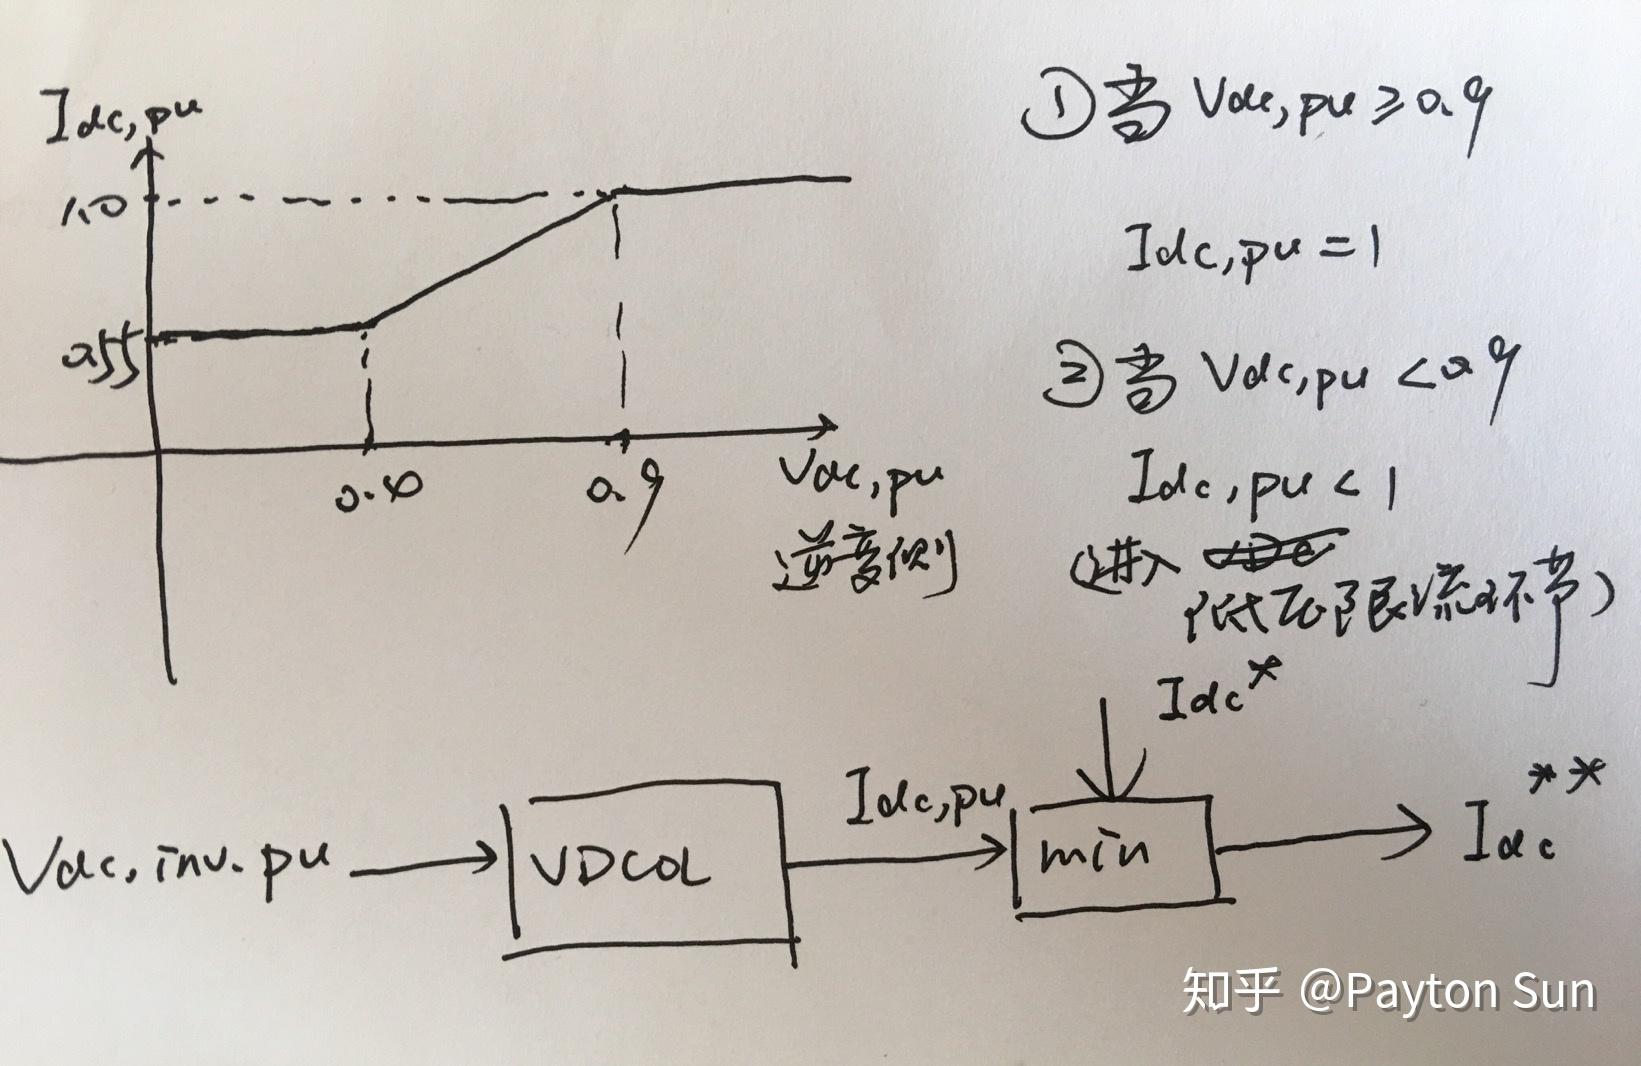 Idc,pu
1.0
0.55
0.40
0.9
Vdc,pu
逆变侧
①当 Vdc,pu ≥ 0.9
Idc,pu = 1
②当 Vdc,pu < 0.9
Idc,pu < 1
(进入
低压限流环节)
Idc*
Vdc.inv.pu
VDCOL
Idc,pu
min
Idc**
知乎 @Payton Sun